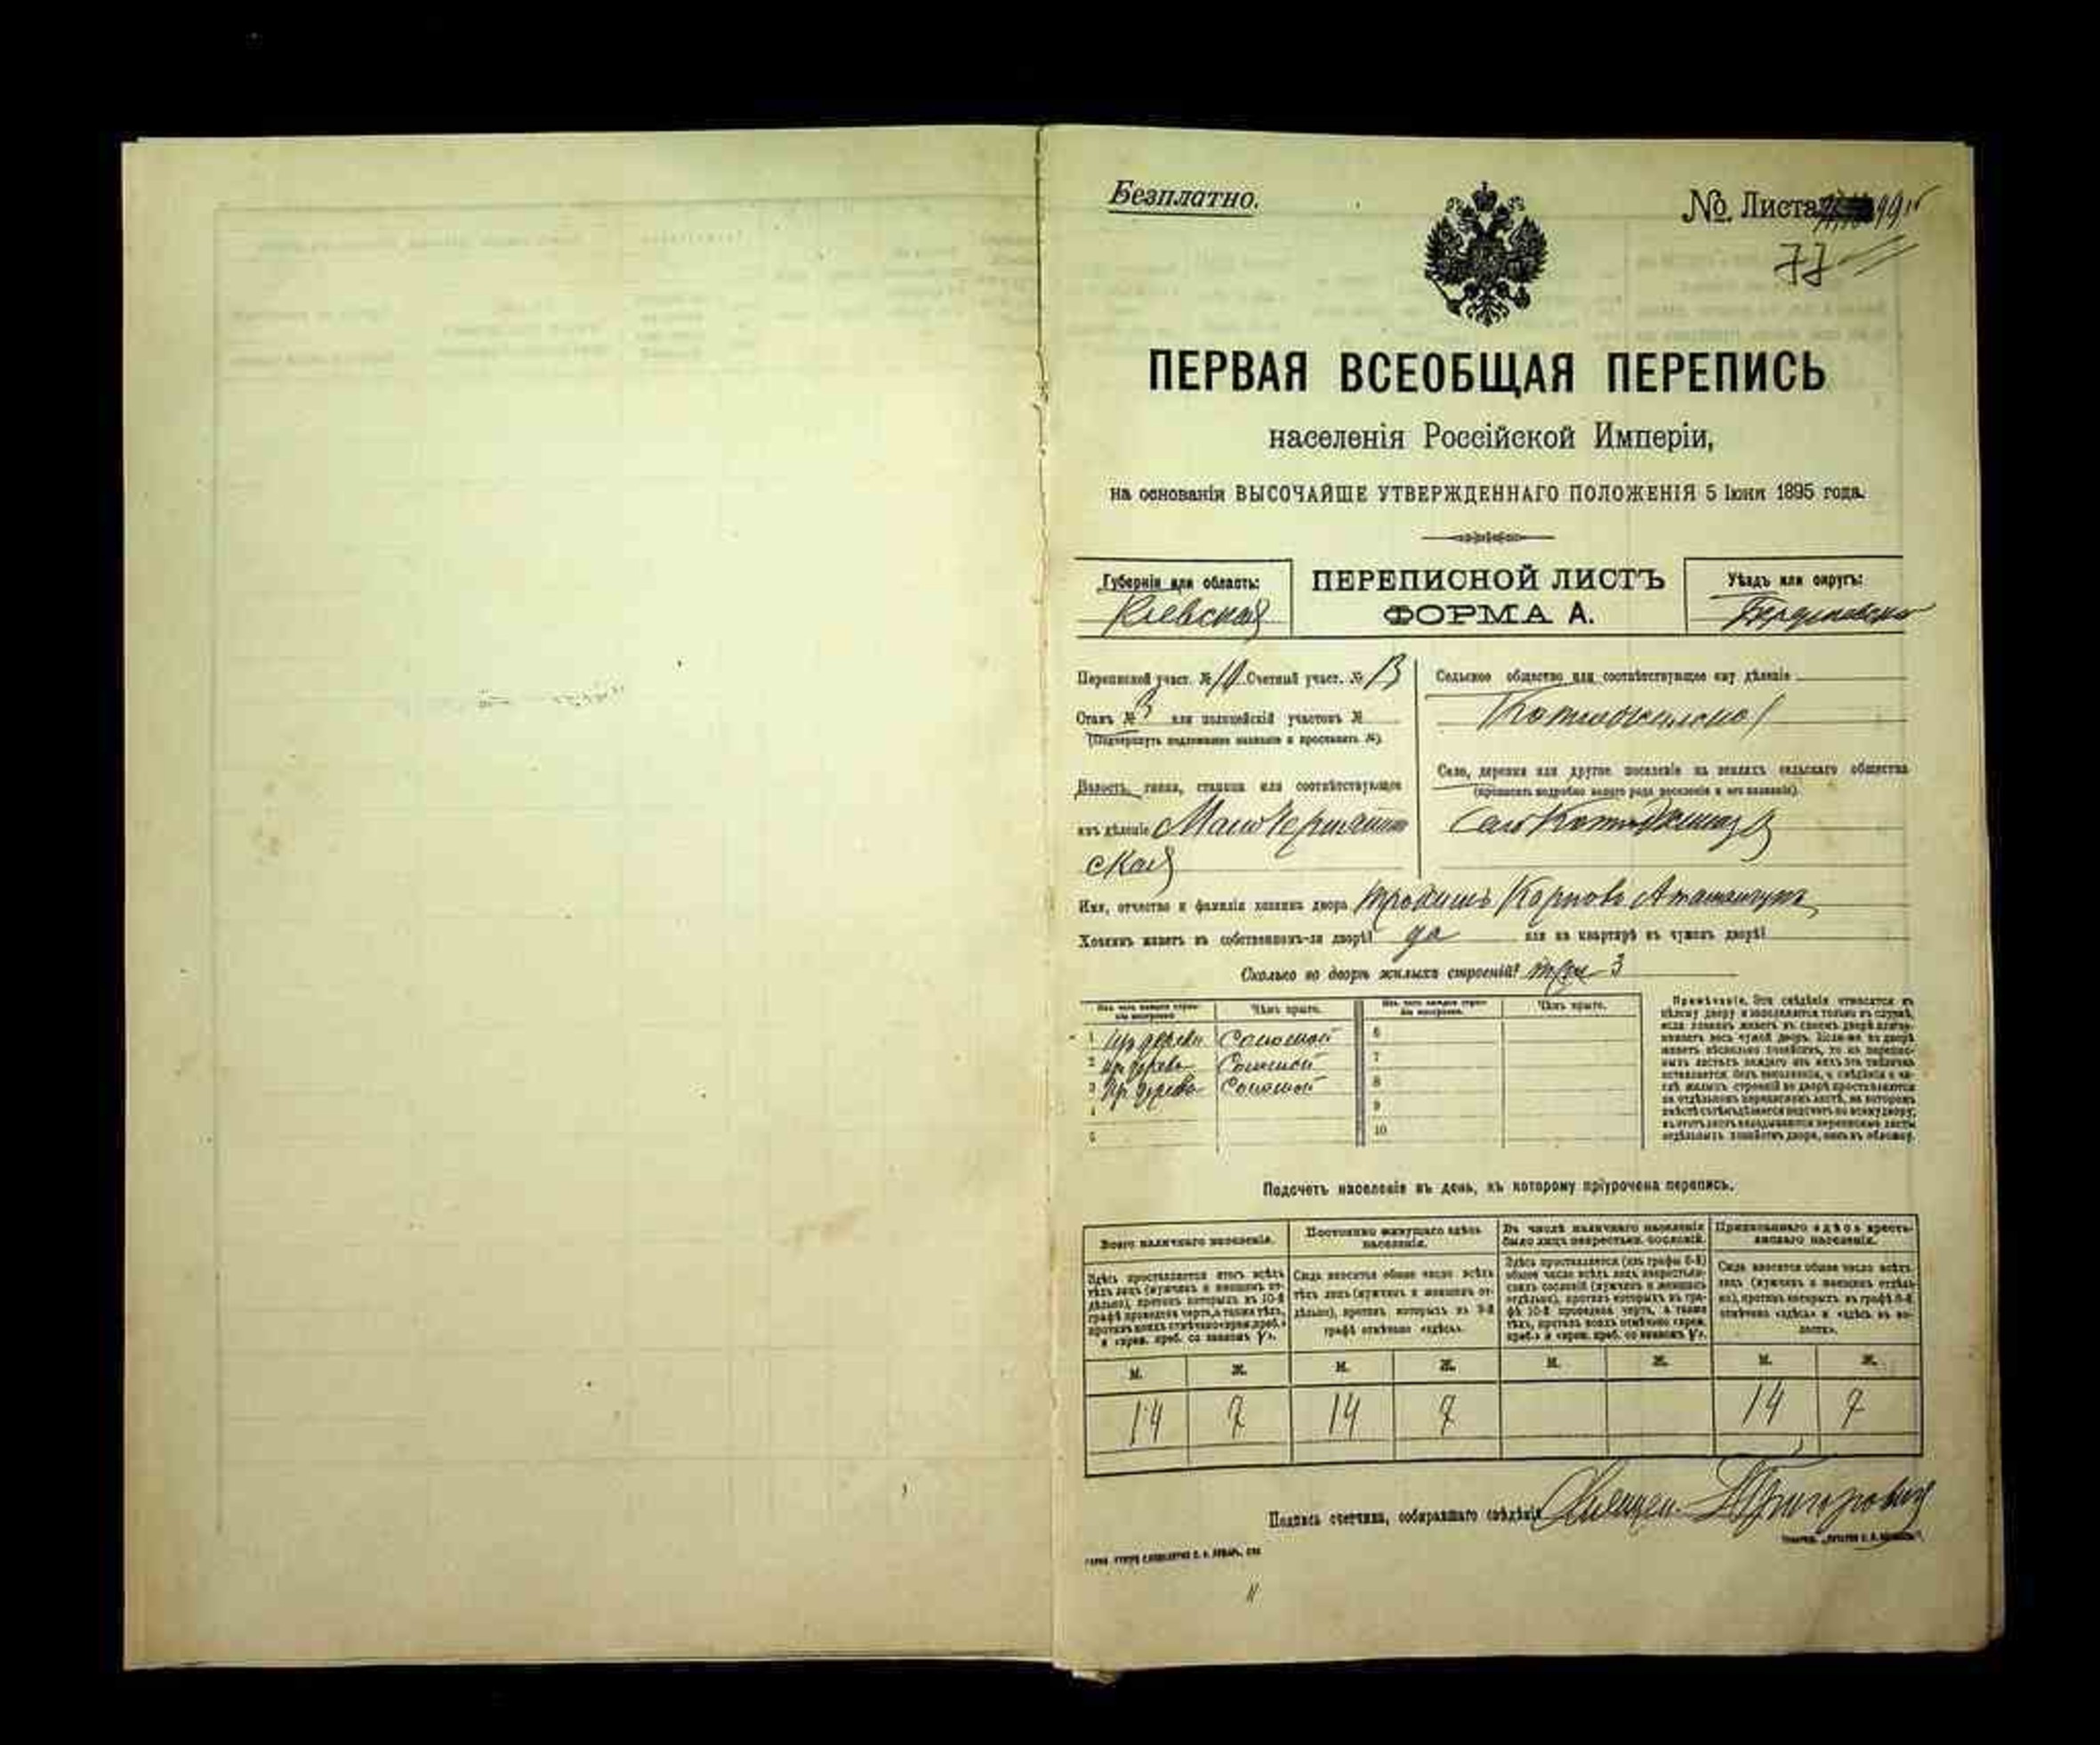 Безплатно.
№. Листа
77
ПЕРВАЯ ВСЕОБЩАЯ ПЕРЕПИСЬ
населенія Россійской Имперіи,
на основаніи ВЫСОЧАЙШЕ УТВЕРЖДЕННАГО ПОЛОЖЕНІЯ 5 Іюня 1895 года.
Губернія или область:
Кіевская
ПЕРЕПИСНОЙ ЛИСТЪ
ФОРМА А.
Уѣздъ или округъ:
Переписной участ. № 10 Счетный участ. №
Станъ № 3 или полицейскій участокъ №
(Подчеркнуть подлежащее названіе и проставить №).
Волость, гмина, станица или соотвѣтствующее
имъ дѣленіе
ская
Сельское общество или соотвѣтствующее ему дѣленіе
Село, деревня или другое поселеніе на земляхъ сельскаго общества
(прописать подробно какого рода поселеніе и его названіе).
Село
Имя, отчество и фамилія хозяина двора Карповъ
Хозяинъ живетъ въ собственномъ-ли дворѣ? да или на квартирѣ въ чужомъ дворѣ?
Сколько во дворѣ жилыхъ строеній? три 3
Изъ чего каждое строеніе построено. Чѣмъ крыто. Изъ чего каждое строеніе построено. Чѣмъ крыто.
1 изъ дерева Соломой 6
2 изъ дерева Соломой 7
3 Изъ дерева Соломой 8
4 9
5 10
Примѣчаніе. Эти свѣдѣнія относятся къ
цѣлому двору и заполняются только въ случаѣ,
если хозяинъ живетъ въ своемъ дворѣ или за-
нимаетъ весь чужой дворъ. Если-же во дворѣ
живетъ нѣсколько хозяйствъ, то на перепис-
ныхъ листахъ каждаго изъ нихъ эта табличка
оставляется безъ заполненія, а свѣдѣнія о чи-
слѣ жилыхъ строеній во дворѣ проставляются
на отдѣльномъ переписномъ листѣ, на которомъ
вмѣстѣ съ тѣмъ дѣлается подсчетъ по всему двору;
въ этотъ листъ вкладываются переписные листы
отдѣльныхъ хозяйствъ двора, какъ въ обложку.
Подсчетъ населенія въ день, къ которому пріурочена перепись.
Всего наличнаго населенія.
Здѣсь проставляется итогъ всѣхъ
тѣхъ лицъ (мужчинъ и женщинъ от-
дѣльно), противъ которыхъ въ 10-й
графѣ проведена черта, а также тѣхъ,
противъ коихъ отмѣчено «врем. преб.»
и «врем. преб. со знакомъ V».
Постоянно живущаго здѣсь
населенія.
Сюда вносится общее число всѣхъ
тѣхъ лицъ (мужчинъ и женщинъ от-
дѣльно), противъ которыхъ въ 9-й
графѣ отмѣчено «здѣсь».
Въ числѣ наличнаго населенія
было лицъ некрестьян. сословій.
Здѣсь проставляется (изъ графы 6-й)
общее число всѣхъ лицъ некрестьян-
скихъ сословій (мужчинъ и женщинъ
отдѣльно), противъ которыхъ въ гра-
фѣ 10-й проведена черта, а также
тѣхъ, противъ коихъ отмѣчено «врем.
преб.» и «врем. преб. со знакомъ V».
Приписаннаго здѣсь кресть-
янскаго населенія.
Сюда вносится общее число всѣхъ
лицъ (мужчинъ и женщинъ отдѣль-
но), противъ которыхъ въ графѣ 8-й
отмѣчено «здѣсь» и «здѣсь въ во-
лости».
М. Ж. М. Ж. М. Ж. М. Ж.
14 7 14 7 14 7
Подпись счетчика, собиравшаго свѣдѣнія Григорович